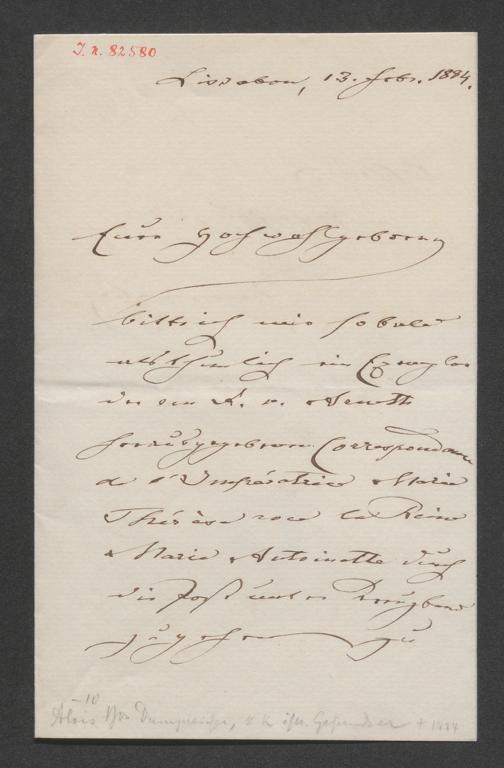 I.N. 82580
Lissabon, 13. Febr. 1884.
Euer Hochwohlgeboren
bitte ich mir sobald
als thunlich ein Exemplar
der von R. v. Arneth
herausgegebenen Correspondance
de l'Impératrice Marie
Thérèse avec la Reine
Marie Antoinette durch
die Post unter Kreuzband
zugehen zu
Alois von Dumreicher, k. k. österr. Gesandter † 1884